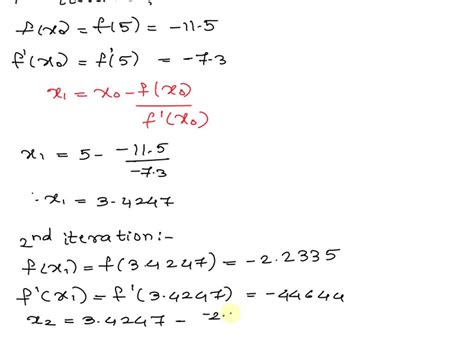 iteration:
f(x0) = f(5) = -11.5
f'(x0) = f'(5) = -7.3
x1 = x0 - f(x0)
f'(x0)
x1 = 5 - -11.5
-7.3
∴ x1 = 3.4247
2nd iteration:-
f(x1) = f(3.4247) = -2.2335
f'(x1) = f'(3.4247) = -44644
x2 = 3.4247 - -2.